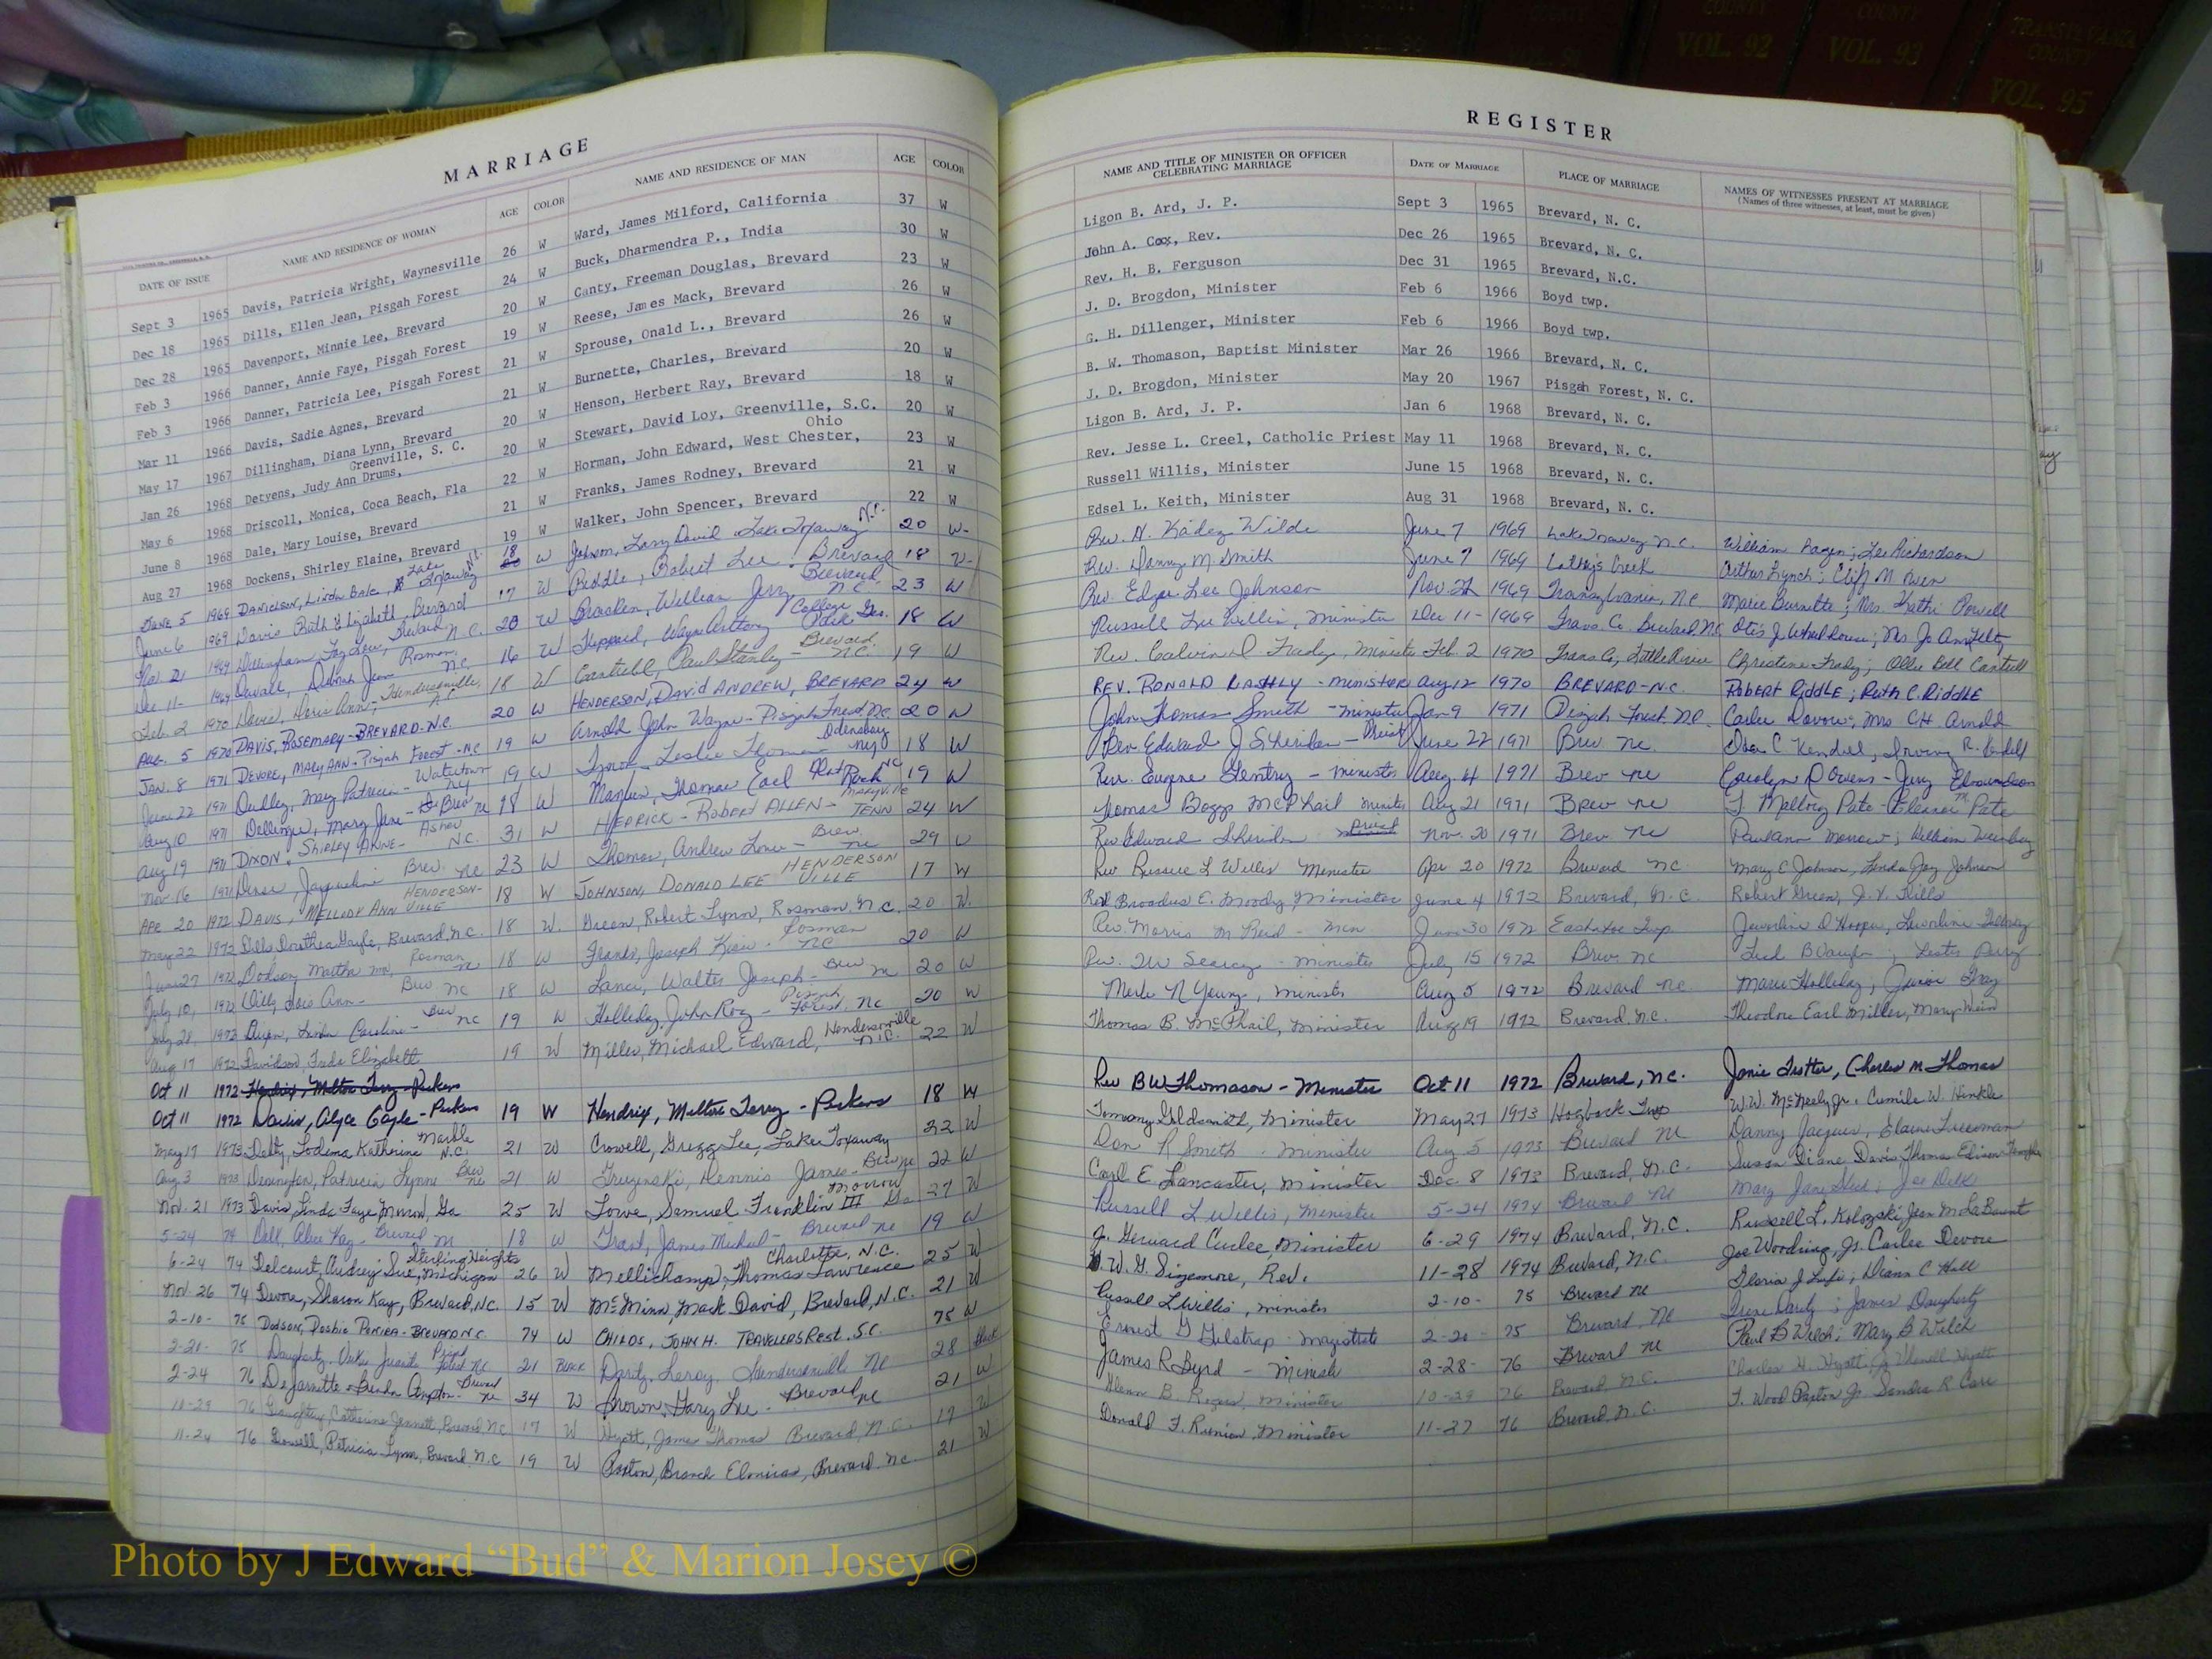 COUNTY
VOL. 92
COUNTY
VOL. 93
TRANSYLVANIA
COUNTY
VOL. 95
MARRIAGE
DATE OF ISSUE NAME AND RESIDENCE OF WOMAN AGE COLOR NAME AND RESIDENCE OF MAN AGE COLOR
Sept 3 1965 Davis, Patricia Wright, Waynesville 26 W Ward, James Milford, California 37 W
Dec 18 1965 Dills, Ellen Jean, Pisgah Forest 24 W Buck, Dharmendra P., India 30 W
Dec 28 1965 Davenport, Minnie Lee, Brevard 20 W Canty, Freeman Douglas, Brevard 23 W
Feb 3 1966 Danner, Annie Faye, Pisgah Forest 19 W Reese, James Mack, Brevard 26 W
Feb 3 1966 Danner, Patricia Lee, Pisgah Forest 21 W Sprouse, Onald L., Brevard 26 W
Mar 11 1966 Davis, Sadie Agnes, Brevard 21 W Burnette, Charles, Brevard 20 W
May 17 1967 Dillingham, Diana Lynn, Brevard 20 W Henson, Herbert Ray, Brevard 18 W
Jan 26 1968 Detyens, Judy Ann Drums, Greenville, S. C. 20 W Stewart, David Loy, Greenville, S.C. 20 W
May 6 1968 Driscoll, Monica, Coca Beach, Fla 22 W Horman, John Edward, West Chester, Ohio 23 W
June 8 1968 Dale, Mary Louise, Brevard 21 W Franks, James Rodney, Brevard 21 W
Aug 27 1968 Dockens, Shirley Elaine, Brevard 19 W Walker, John Spencer, Brevard 22 W
June 5 1969 Danielson, Linda Lake Toxaway N.C. 18 W Johnson, Larry David Lake Toxaway N.C. 20 W
June 6 1969 Davis Ruth Elizabeth, Brevard 17 W Riddle, Robert Lee - Brevard 18 W
Nov 21 1969 Dillingham Brevard N.C. 20 W Bracken, William Jerry Brevard, N.C. 23 W
Dec 11- 1969 Duvall, Deborah Jean Rosman, N.C. 16 W Sheppard, Wayne Anthony College Park Ga. 18 W
Feb. 2 1970 Davis, Doris Ann - Hendersonville, N.C. 18 W Cantrell, Paul Stanley - Brevard N.C. 19 W
Aug. 5 1970 DAVIS, ROSEMARY - BREVARD-N.C. 20 W HENDERSON, DAVID ANDREW, BREVARD 24 W
JAN. 8 1971 DEVORE, MARY ANN - Pisgah Forest - NC 19 W Arnold John Wayne - Pisgah Forest NC 20 W
June 22 1971 Dudley, Mary Patricia - Watertown NY 19 W Leslie Thomas Odensburg NY 18 W
Aug 10 1971 Dellinger, Mary Jane - Brev NC 18 W Thomas Earl Flat Rock NC 19 W
Aug 19 1971 DIXON, SHIRLEY ANNE - Ashev N.C. 31 W HEDRICK - ROBERT ALLEN - MARYVILLE TENN 24 W
Nov. 16 1971 Jacqueline Brev. NC 23 W Thomas, Andrew - Brev. NC 29 W
APR 20 1972 DAVIS, MELLODY ANN HENDERSONVILLE 18 W JOHNSON, DONALD LEE HENDERSONVILLE 17 W
May 22 1972 Dills, Dorothea Gayle, Brevard, N.C. 18 W. Green, Robert Lynn, Rosman, N.C. 20 W.
June 27 1972 Dodson, Martha Rosman NC 18 W Franks, Joseph - Rosman NC 20 W
July 10, 1972 Ann - Brev NC 18 W Lance, Walter Joseph - Brev NC 20 W
July 28, 1972 Dixon, Caroline - Brev NC 19 W Holliday, John Roy - Pisgah Forest, NC 20 W
Aug 17 1972 Davidson, Elizabeth 19 W Miller, Michael Edward, Hendersonville N.C. 22 W
Oct 11 1972 Hendrix, Melton Terry - Pickens
Oct 11 1972 Davis, Alyce Gayle - Pickens 19 W Hendrix, Melton Terry - Pickens 18 W
May 17 1973 Katherine Marble N.C. 21 W Crowell, Gregg Lee, Lake Toxaway 22 W
Aug 3 1973 Patricia Lynne Brev NC 21 W Dennis James - Brev NC 22 W
Nov. 21 1973 Davis, Linda Faye Morrow, Ga 25 W Lowe, Samuel Franklin III Morrow Ga 27 W
5-24 74 Dall, Alice Kay - Brevard NC 18 W Grant, James Michael - Brevard NC 19 W
6-24 74 Delcourt, Audrey Sue, Sterling Heights Michigan 26 W Mellichamp, Thomas Lawrence Charlotte, N.C. 25 W
Nov. 26 74 Devore, Sharon Kay, Brevard, N.C. 15 W McMinn, Mack David, Brevard, N.C. 21 W
2-10- 75 Dodson, - BREVARD NC 74 W CHILDS, JOHN H. TRAVELERS REST. S.C. 75 W
2-20- 75 Daugherty, Pisgah Forest NC 21 Black Leroy, Hendersonville NC 28 Black
2-24 76 DeJarnette Brevard NC 34 W Brown, Gary Lee - Brevard NC 21 W
10-29 76 Catherine Jennett, Brevard NC 17 W Wyatt, James Thomas Brevard, N.C. 17 W
11-24 76 Dowell, Patricia Lynn, Brevard, N.C 19 W Paxton, Branch Brevard N.C. 21 W
REGISTER
NAME AND TITLE OF MINISTER OR OFFICER CELEBRATING MARRIAGE DATE OF MARRIAGE PLACE OF MARRIAGE NAMES OF WITNESSES PRESENT AT MARRIAGE
(Names of three witnesses, at least, must be given)
Ligon B. Ard, J. P. Sept 3 1965 Brevard, N. C.
John A. Cox, Rev. Dec 26 1965 Brevard, N. C.
Rev. H. B. Ferguson Dec 31 1965 Brevard, N.C.
J. D. Brogdon, Minister Feb 6 1966 Boyd twp.
G. H. Dillenger, Minister Feb 6 1966 Boyd twp.
B. W. Thomason, Baptist Minister Mar 26 1966 Brevard, N. C.
J. D. Brogdon, Minister May 20 1967 Pisgah Forest, N. C.
Ligon B. Ard, J. P. Jan 6 1968 Brevard, N. C.
Rev. Jesse L. Creel, Catholic Priest May 11 1968 Brevard, N. C.
Russell Willis, Minister June 15 1968 Brevard, N. C.
Edsel L. Keith, Minister Aug 31 1968 Brevard, N. C.
Rev. H. Wilde June 7 1969 Lake Toxaway N.C. William ; Lee Richardson
Rev. Danny M. Smith June 7 1969 Cathey's Creek Arthur Lynch; Cliff M Owen
Rev. Edgar Lee Johnson Nov. 22 1969 Transylvania, N.C. Marie Burnette; Mrs. Kathi Powell
Russell Lee Willis, Minister Dec 11- 1969 Trans. Co. Brevard, N.C. Otis J. ; Mrs Jo Ann
Rev. Calvin D Minister Feb. 2 1970 Trans Co, Little River Christine ; Ollie Bell Cantrell
REV. RONALD - MINISTER Aug 12 1970 BREVARD - N.C. ROBERT RIDDLE; Ruth C. RIDDLE
John Thomas Smith - Minister Jan 9 1971 Pisgah Forest, N.C. Carlee Devore; Mrs CH Arnold
Rev. Edward J Sheridan - Priest June 22 1971 Brev NC. C. Kendell, Irving R. Kendell
Rev. Eugene Gentry - Minister Aug 14 1971 Brev NC Carolyn D Owens - Jerry Edmundson
Thomas Boggs McPhail Minister Aug 21 1971 Brev NC Pate - Eleanor M Pate
Rev Edward Sheridan Priest Nov. 20 1971 Brev. NC Morrow; William
Rev Russell L Willis Minister Apr 20 1972 Brevard NC Mary E Johnson, Linda Joy Johnson
Rev Broadus E. Moody, Minister June 4 1972 Brevard, N.C. Robert Green, J. V. Dills
Rev. Morris M Reid - Min June 30 1972 Eastatoe Twp Hooper,
Rev. TW Searcy - Minister July 15 1972 Brev. NC Fred B ; Lester Perry
Merle N Young, Minister Aug 5 1972 Brevard NC Marie Holliday; Junior Gray
Thomas B. McPhail, Minister Aug 19 1972 Brevard, N.C. Theodore Earl Miller, Mary
Rev BW Thomason - Minister Oct 11 1972 Brevard, N.C. Janie Trotter, Charles M. Thomas
Tommy Goldsmith, Minister May 27 1973 Hogback Twp W.W. McNeely Jr. Camile W. Hinkle
Don R Smith - Minister Aug 5 1973 Brevard NC Danny Jacques, Elaine Freeman
Carl E. Lancaster, Minister Dec. 8 1973 Brevard, N.C. Susan Diane Davis, Thomas Edison
Russell L Willis, Minister 5-24 1974 Brevard NC Mary Jane ; Joe
J. Gerward Curlee, Minister 6-29 1974 Brevard, N.C. Russell L. Kolozski, Jean M. LaBount
W. G. Sizemore, Rev. 11-28 1974 Brevard, N.C. Joe Woodring, Jr. Carlee Devore
Russell L Willis, Minister 2-10- 75 Brevard NC Gloria J ; C Hall
Ernest G Gilstrap - Magistrate 2-20- 75 Brevard, NC ; James Daugherty
James R Byrd - Minister 2-28- 76 Brevard NC Paul B Welch; Mary B Welch
Glenn B. Minister 10-29 76 Brevard, N.C. Charles H. Wyatt, Wyatt
Donald F. Runion, Minister 11-27 76 Brevard, N.C. T. Wood Paxton Jr Sandra R Carr
Photo by J Edward “Bud” & Marion Josey ©